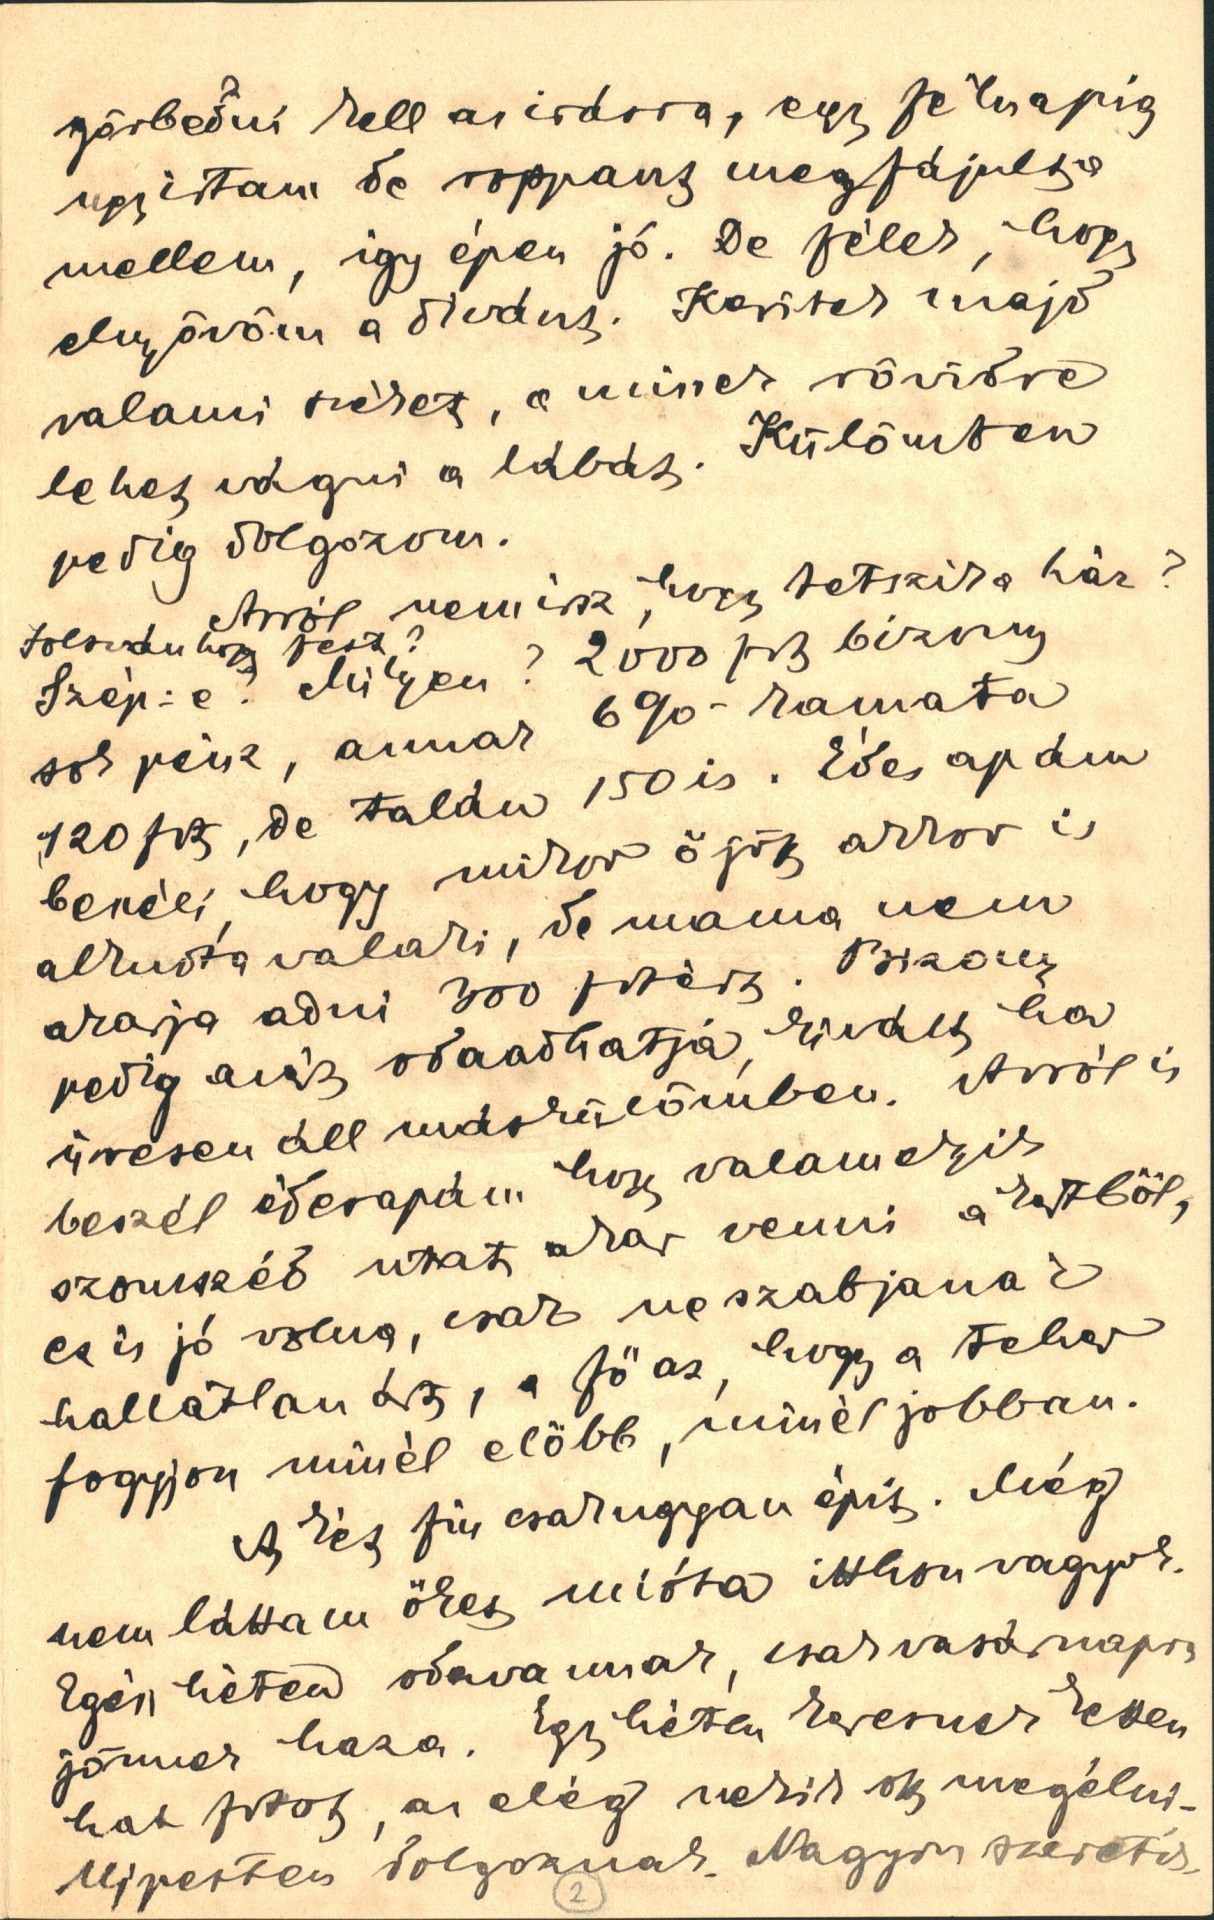 görbedni kell az irásra, egy fél napig
ugy irtam de roppant megfájult a
mellem, igy épen jó. De félek, hogy
elnyövöm a divánt. Keritek majd
valami széket, a minek rövidre
lehet vágni a lábát. Külömben
pedig dolgozom.
Arról nem irsz, hogy tetszik a ház?
Tolsván hogy fest?
Szép-e? Milyen? 2000 frt bizony
sok pénz, annak 6%-kamata
120 frt, de talán 150 is. Édes apám
beszéli, hogy mikor ő jött akkor is
alkudta valaki, de mama nem
akarja adni 300 frtért. Bizony
pedig azért odaadhatja, kivált ha
üresen áll máskülömben. Arról is
beszél édesapám hogy valamelyik
szomszéd utat akar venni a kertből,
ez is jó volna, csak ne szabjanak
hallatlan árt, a fő az, hogy a teher
fogyjon minél előbb, minél jobban.
A két fiu csakugyan épit. Még
nem láttam őket mióta itthon vagyok.
Egész héten odavannak, csak vasárnapra
jönnek haza. Egy héten keresnek ketten
hat frtot, az elég nekik ott megélni.
Ujpesten dolgoznak. Nagyon szeretik
2